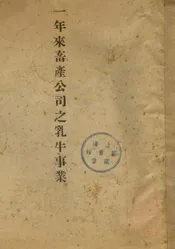 一年來畜產公司之乳牛事業